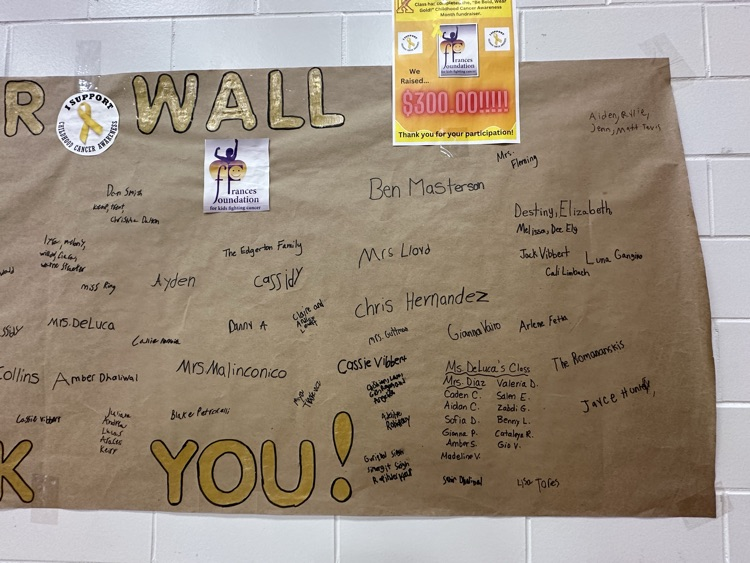 R WALL
I SUPPORT
CHILDHOOD CANCER AWARENESS
ffc
rances
foundation
for kids fighting cancer
Class has completed the, "Be Bold, Wear
Gold!" Childhood Cancer Awareness
Month fundraiser.
I SUPPORT
CHILDHOOD CANCER AWARENESS
rances
foundation
for kids fighting cancer
We
Raised...
$300.00!!!!!
Thank you for your participation!
Aiden,
Jenn, Matt
Mrs.
Fleming
Ben Masterson
Dan Smith
Christine Dalton
Destiny, Elizabeth
Melissa, Dee Ely
The Edgerton Family
Mrs Lloyd
Jack Vibbert
Luna
Cali Limbach
Miss Roy
Ayden
Cassidy
Chris Hernandez
Mrs. DeLuca
Danny A
Claire and
mrs. Guttman
Gianna Vairo
Arlene Fetta
Collins
Amber Dhaliwal
Mrs. Malinconico
Cassie Vibbert
Ms. DeLuca's Class
Mrs. Diaz
Caden C.
Aidan C.
Sofia D.
Gianna P.
Amber S.
Madeline V.
Valeria D.
Salm E.
Zabdi G.
Benny L.
Catalaya R.
Gio V.
The Romanankis
Jayce Huntley
Cassie Vibbert
Juliana
Andrew
Lucas
Blake
K YOU!
Lisa Torres